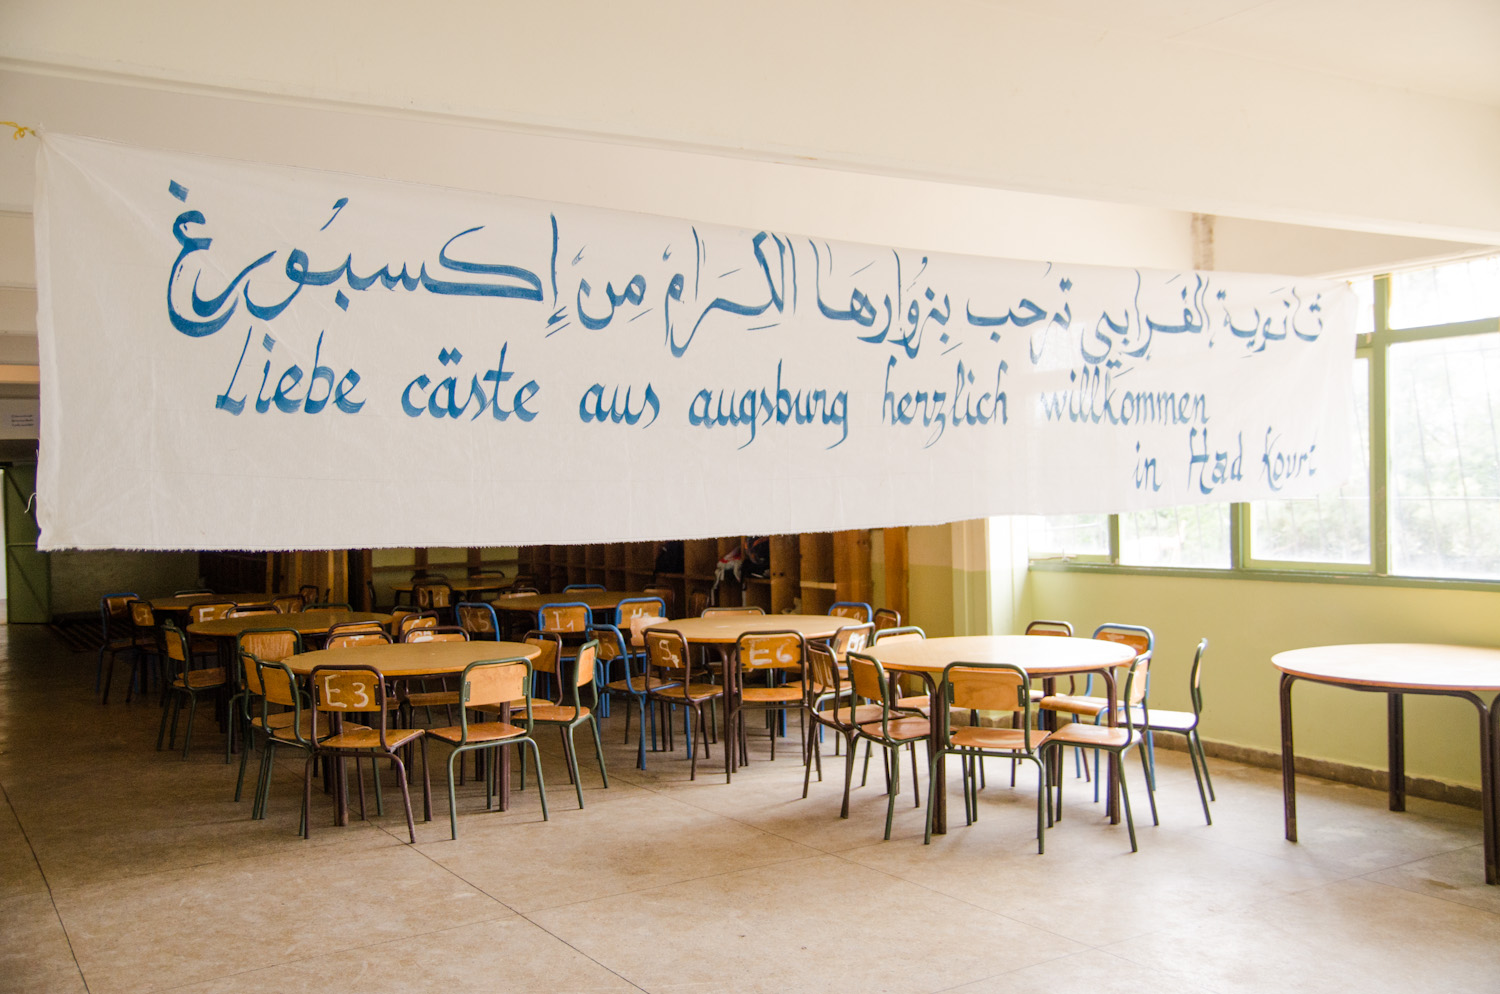 ثَانَوِيَة الفَرَابِي تُرَحِب بِزُوَّارِهَا الكِرَامْ مِنْ إِكسبُورغ
Liebe cäste aus augsburg herzlich willkommen
in Had Kourt
E3
E6
I1
K5